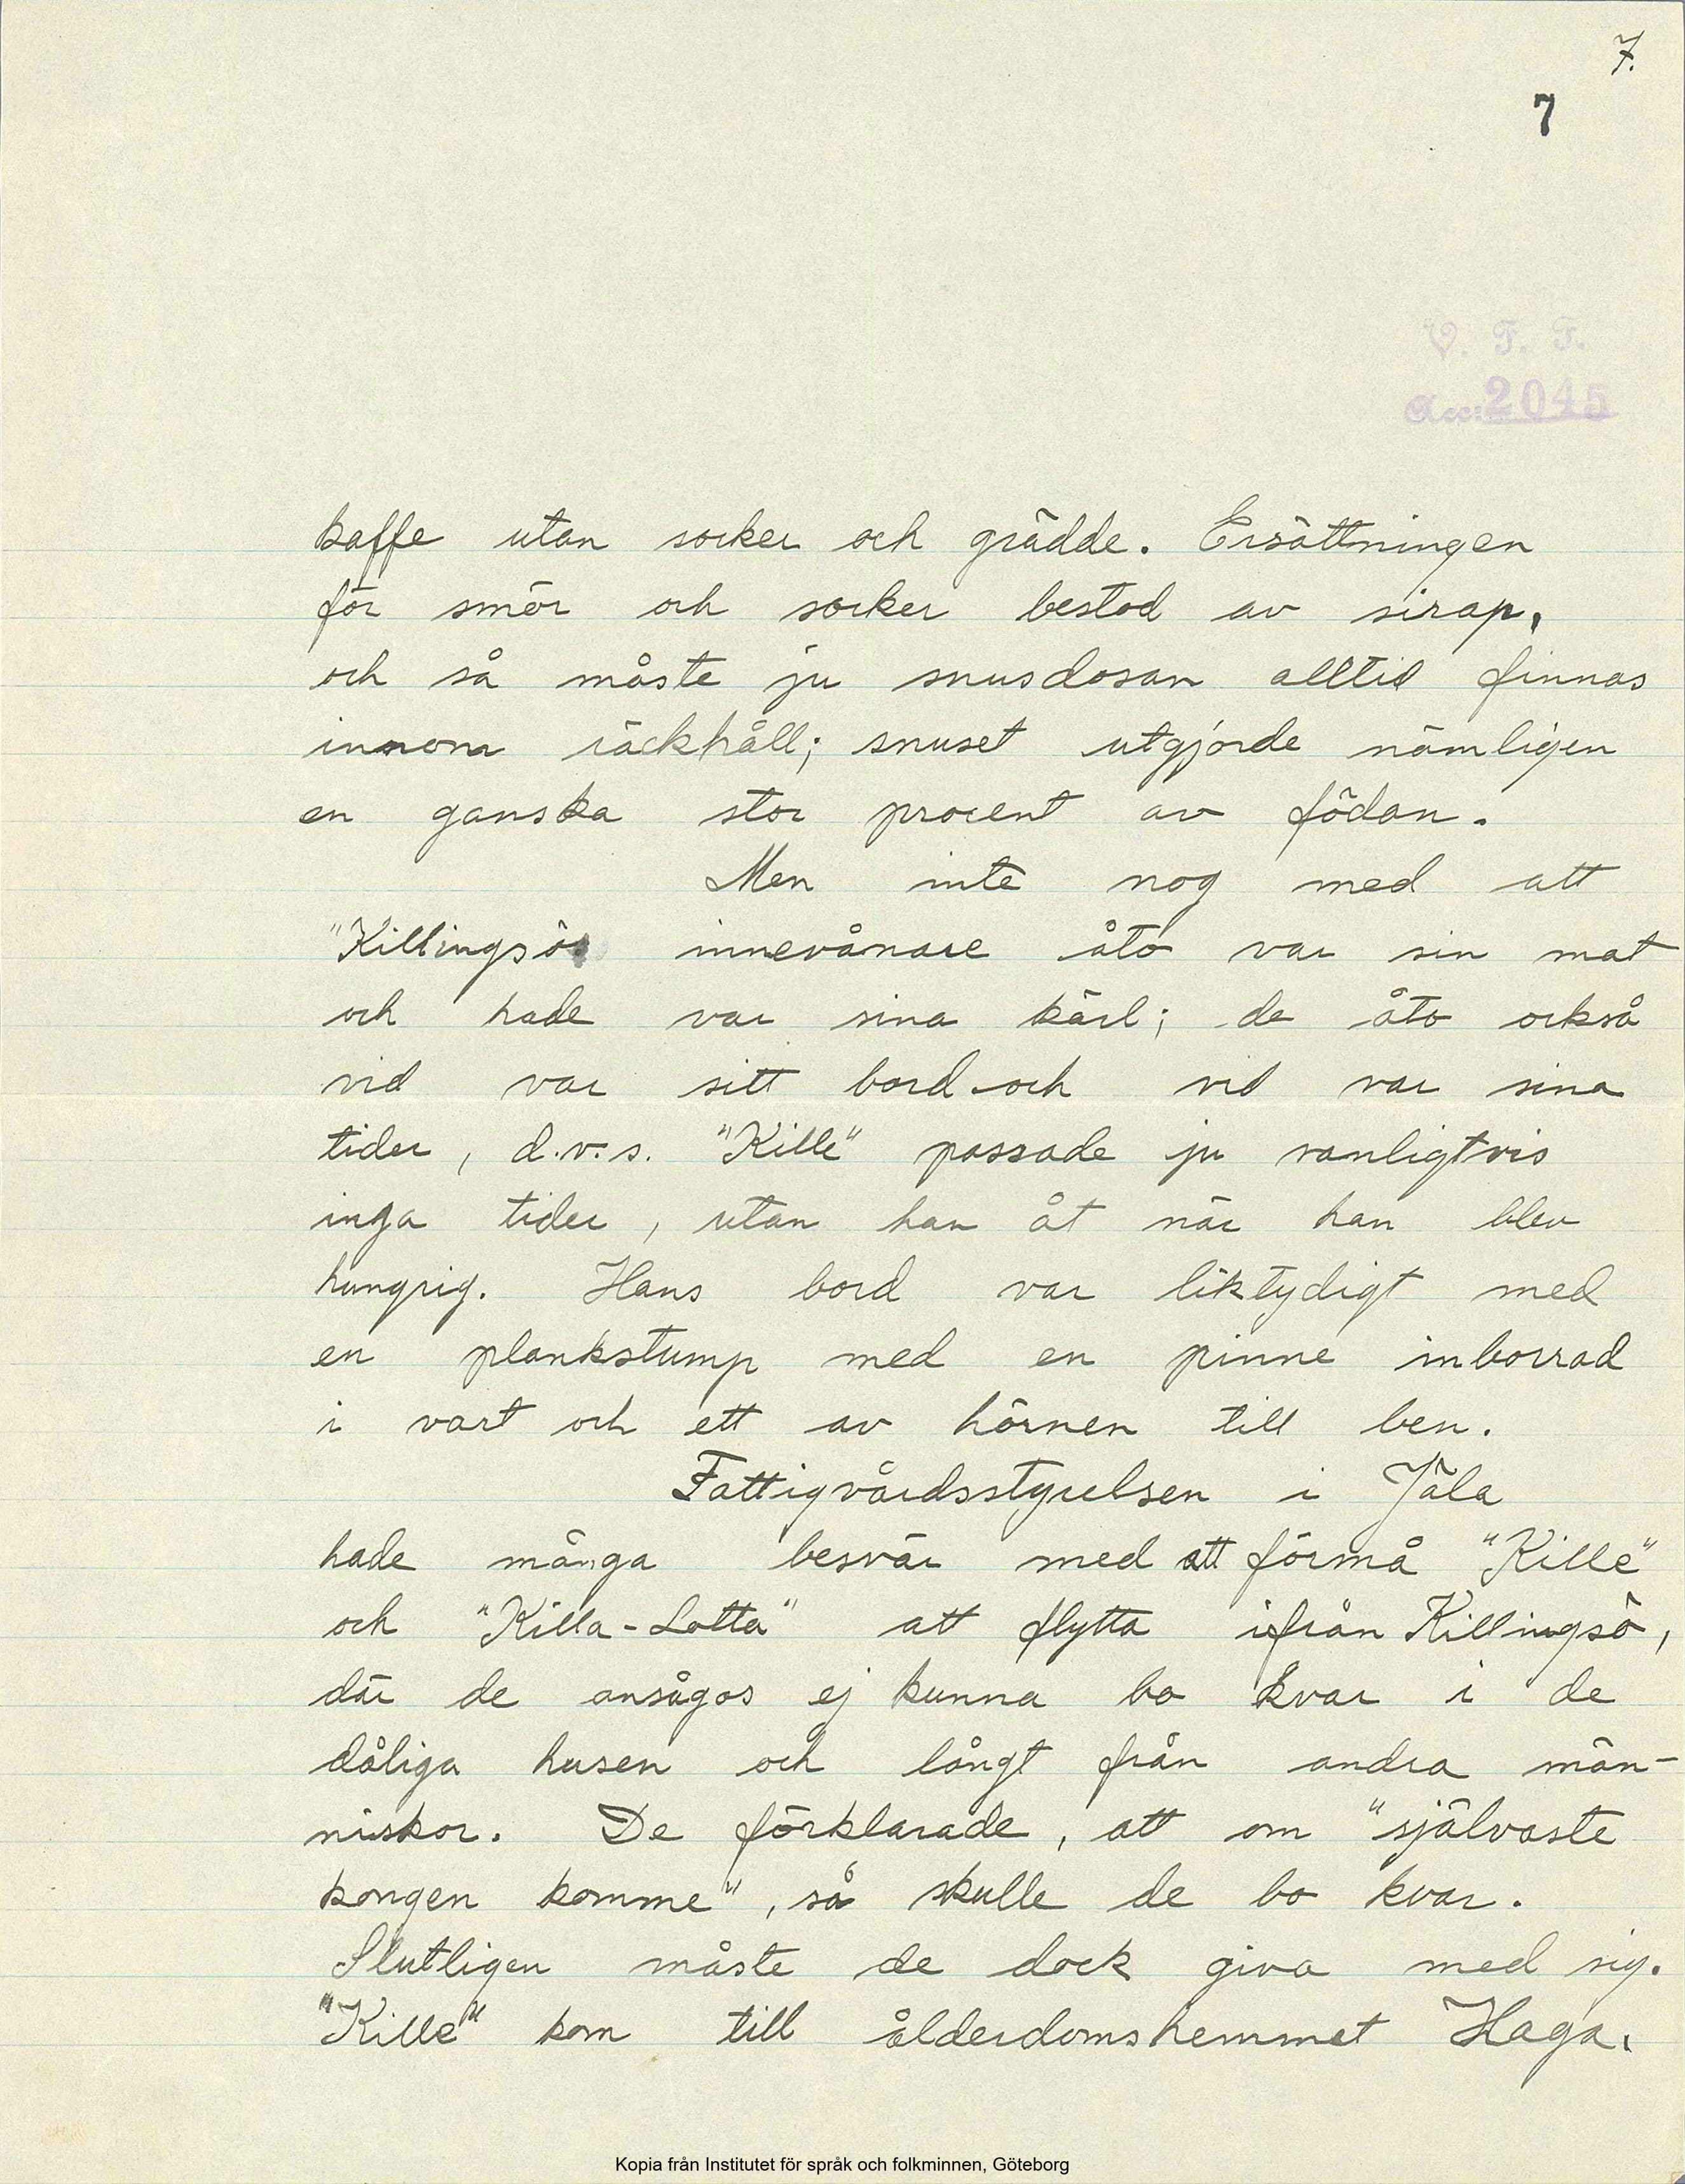 7.
7
V. F. F.
Acc: 2045
kaffe utan socker och grädde. Ersättningen
för smör och socker bestod av sirap,
och så måste ju snusdosan alltid finnas
innom räckhåll; snuset utgjorde nämligen
en ganska stor procent av födan.
Men inte nog med att
"Killingsös innevånare åto var sin mat
och hade var sina kärl; de åto också
vid var sitt bord och vid var sina
tider, d.v.s. "Kille" passade ju vanligtvis
inga tider, utan han åt när han blev
hungrig. Hans bord var liktydigt med
en plankstump med en pinne inborrad
i vart och ett av hörnen till ben.
Fattigvårdsstyrelsen i Jäla
hade många besvär med att förmå "Kille"
och "Killa-Lotta" att flytta ifrån Killingsö,
där de ansågos ej kunna bo kvar i de
dåliga husen och långt från andra män-
niskor. De förklarade, att om "självaste
kongen komme", så skulle de bo kvar.
Slutligen måste de dock giva med sig.
"Kille" kom till ålderdomshemmet Haga,
Kopia från Institutet för språk och folkminnen, Göteborg